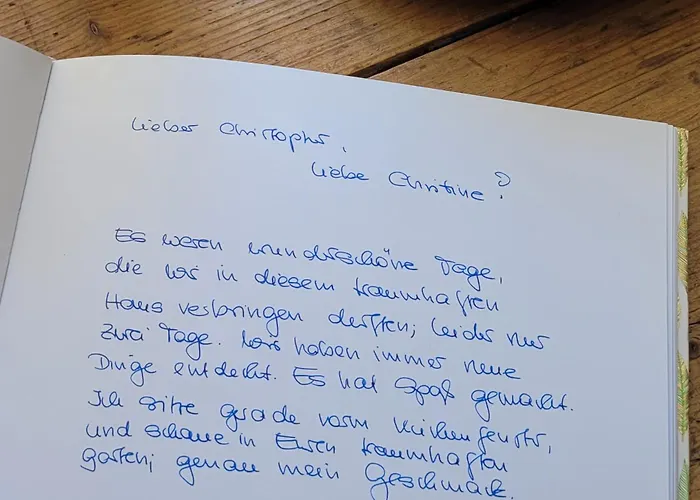 Lieber Christopher,
liebe Christine?
Es waren wunderschöne Tage,
die wir in diesem traumhaften
Haus verbringen durften; leider nur
zwei Tage. Wir haben immer neue
Dinge entdeckt. Es hat Spaß gemacht.
Ich sitze gerade vorm Küchenfenster,
und schaue in Euren traumhaften
Garten; genau mein Geschmack